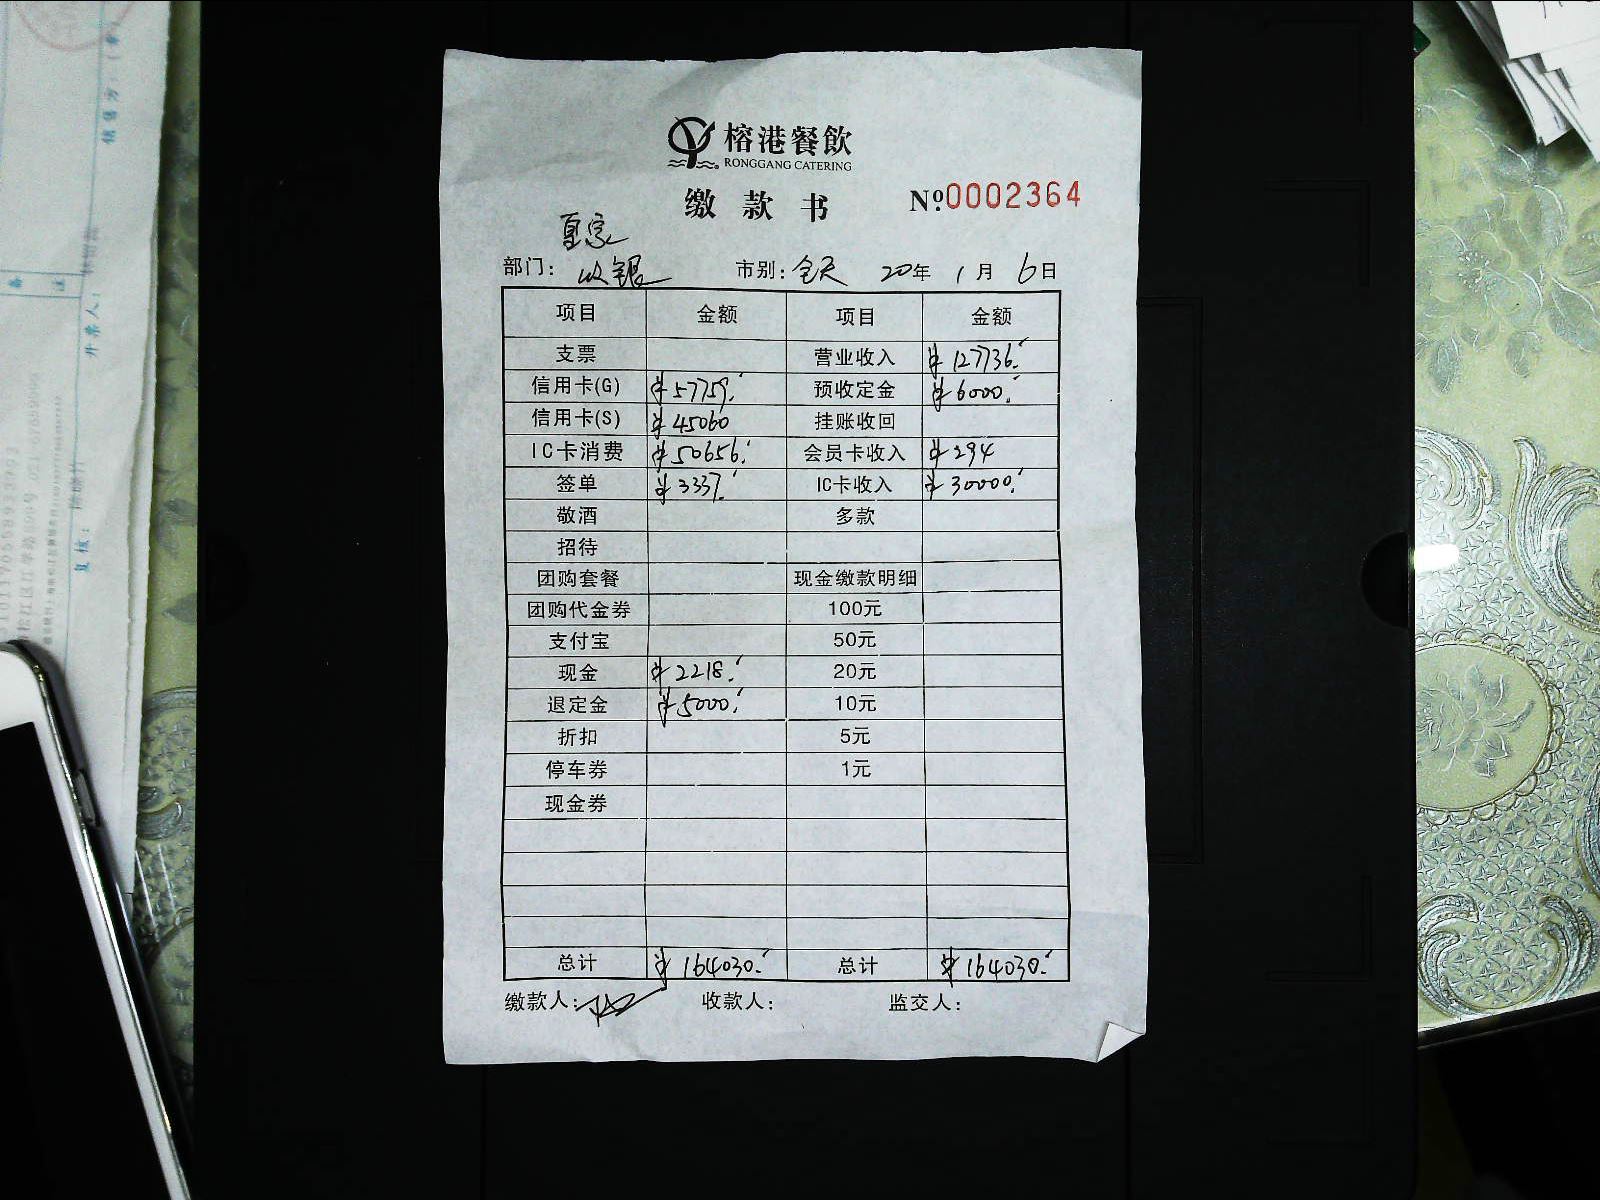 榕港餐飲
RONGGANG CATERING
缴款书 №0002364
部门: 收银 市别: 全天 20年 1月 6日
项目 金额 项目 金额
支票 营业收入 ¥127736.
信用卡(G) ¥57759. 预收定金 ¥6000.
信用卡(S) ¥45060 挂账收回
IC卡消费 ¥50656. 会员卡收入 ¥294
签单 ¥3337. IC卡收入 ¥30000.
敬酒 多款
招待
团购套餐 现金缴款明细
团购代金券 100元
支付宝 50元
现金 ¥2218. 20元
退定金 ¥5000. 10元
折扣 5元
停车券 1元
现金券
总计 ¥164030. 总计 ¥164030.
缴款人: 收款人: 监交人:
销售方:(章)
备注
开票人:
复核: